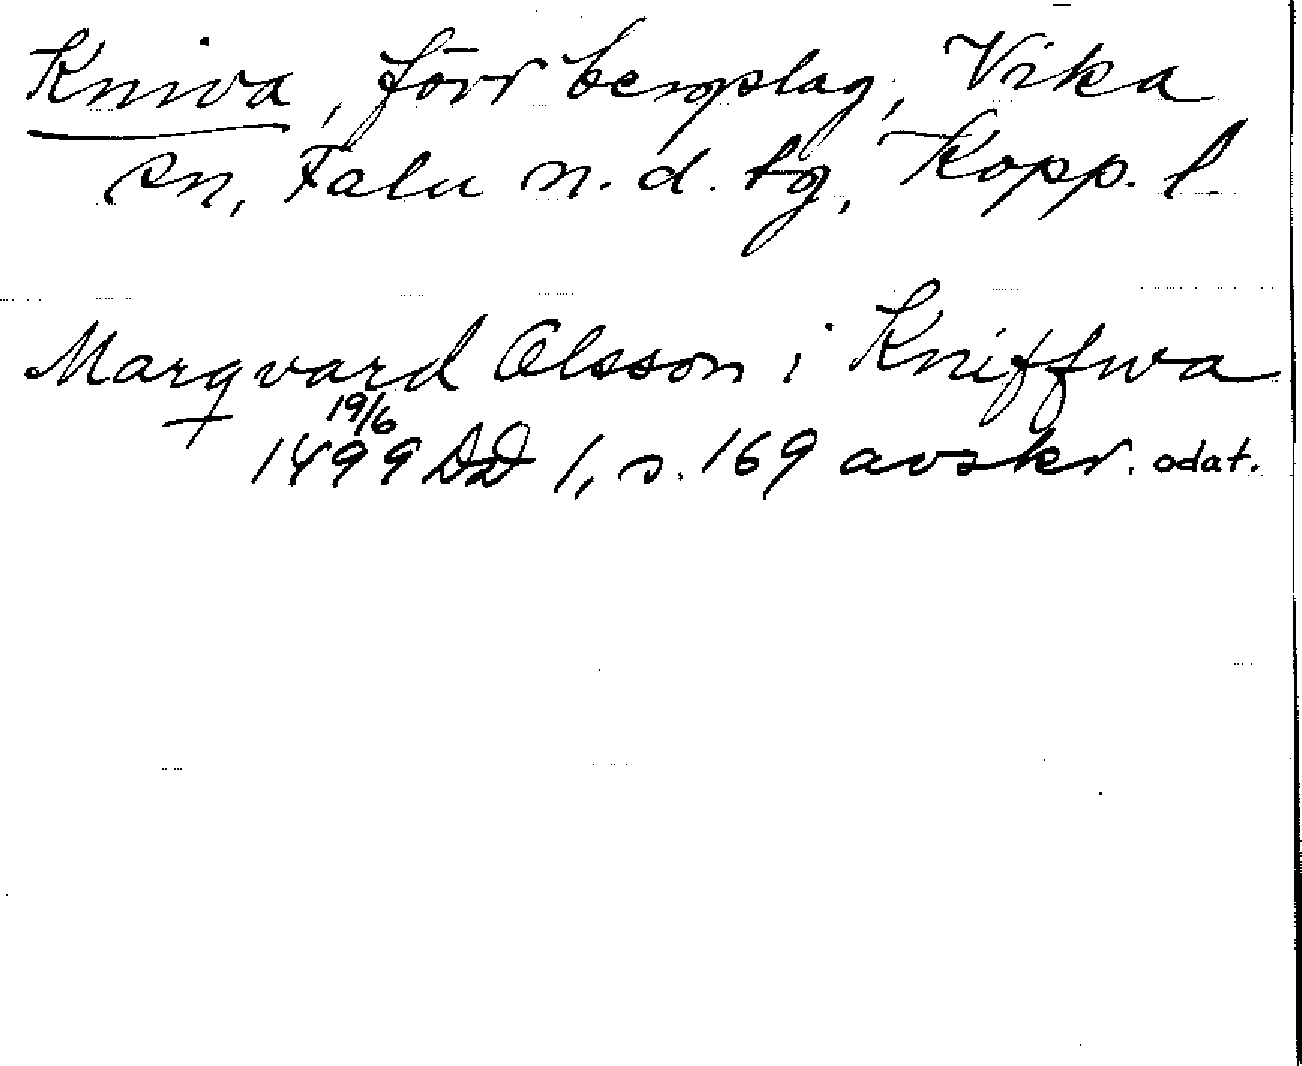 Kniva, förr bergslag, Vika
sn, Falu n. d. tg, Kopp. l
Marqvard Olsson i Kniffwa
19/6
1499 DD 1, s. 169 avskr. odat.